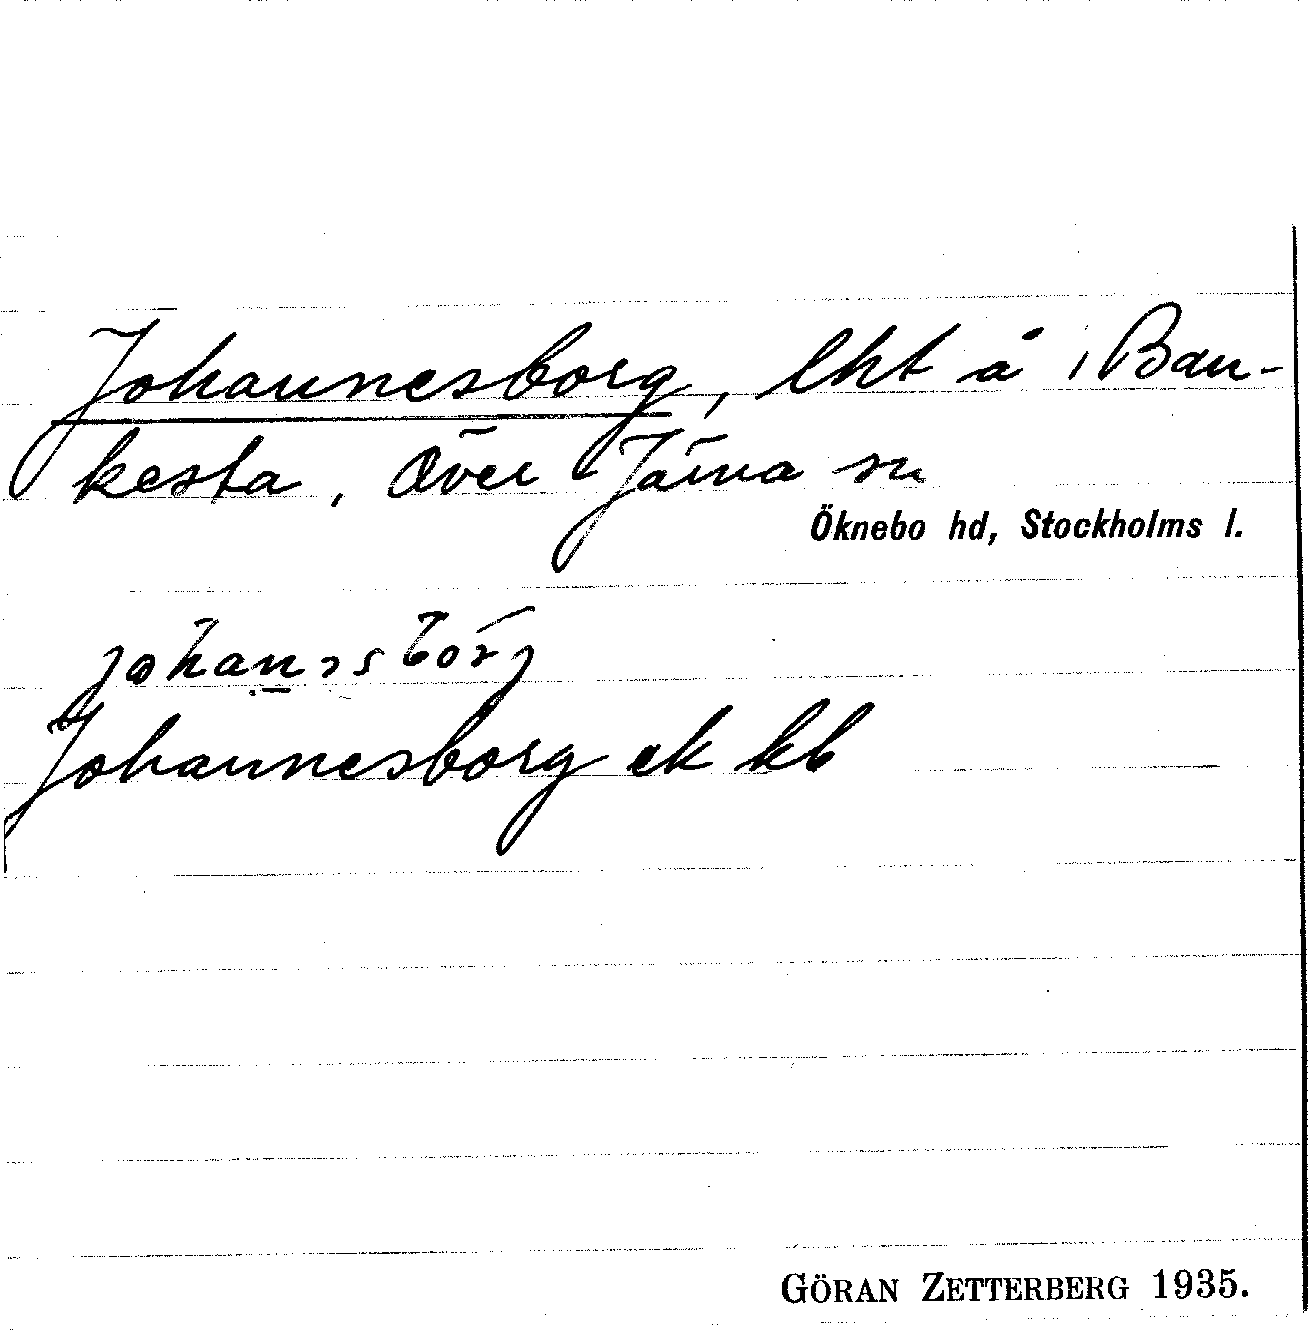 Johannesborg, lht å i Ban-
kesta, Över Järna sn
Öknebo hd, Stockholms l.
Johannesborg ek kb
GÖRAN ZETTERBERG 1935.